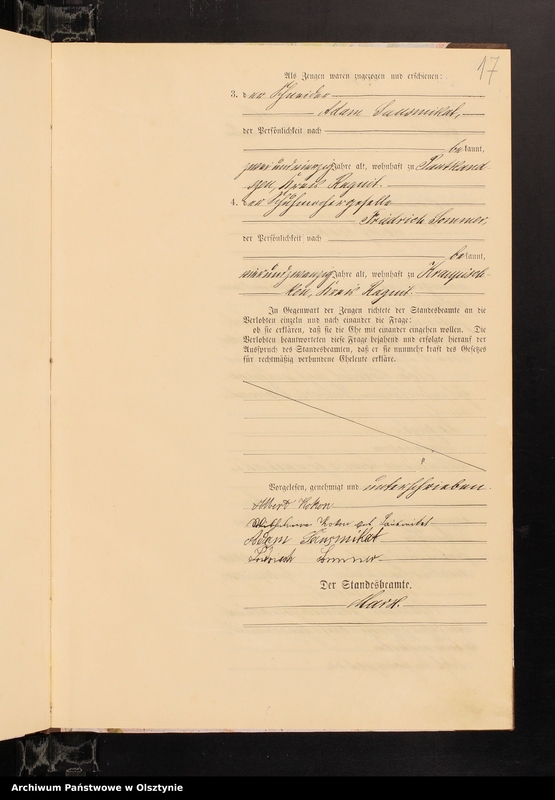 17
Als Zeugen waren zugezogen und erschienen:
3. der Schneider
Adam
der Persönlichkeit nach
bekannt,
zweiundvierzig Jahre alt, wohnhaft zu
Kreis Ragnit.
4. der Schuhmachergeselle
Friedrich Sommer,
der Persönlichkeit nach
bekannt,
vierundzwanzig Jahre alt, wohnhaft zu
Kreis Ragnit.
In Gegenwart der Zeugen richtete der Standesbeamte an die
Verlobten einzeln und nach einander die Frage:
ob sie erklären, daß sie die Ehe mit einander eingehen wollen. Die
Verlobten beantworteten diese Frage bejahend und erfolgte hierauf der
Ausspruch des Standesbeamten, daß er sie nunmehr kraft des Gesetzes
für rechtmäßig verbundene Eheleute erkläre.
Vorgelesen, genehmigt und unterschrieben.
Albert
Wilhelmine geb.
Adam
Friedrich Sommer
Der Standesbeamte.
Archiwum Państwowe w Olsztynie